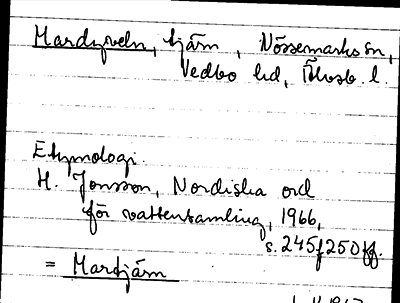 Mardyveln, tjärn, Nössemarks sn,
Vedbo hd, Älvsb. l.
Etymologi.
H. Jonsson, Nordiska ord
för vattensamling, 1966,
s. 245f 250ff.
= Mardjärn